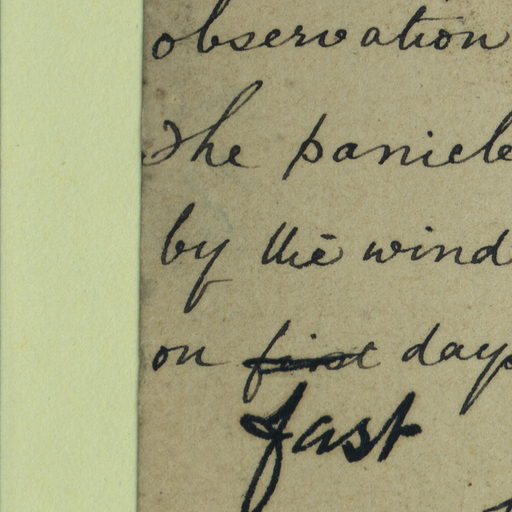 observation
The panicle
by the wind
on first days
fast